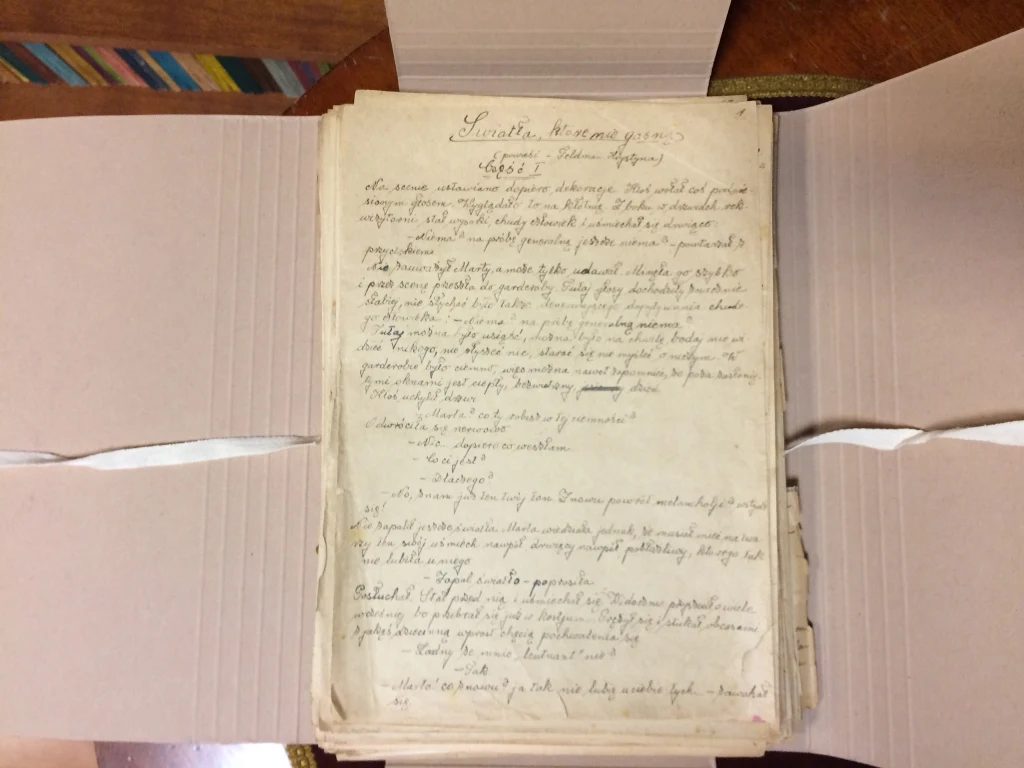 1.
Światła, które nie gasną
(powieść - Feldman Krystyna)
Część I
Na scenie ustawiano dopiero dekoracje. Ktoś wołał coś podnie
sionym głosem. Wyglądało to na kłótnię. Z boku w drzwiach rek
wizytorni, stał wysoki, chudy człowiek i uśmiechał się drwiąco.
- Niema? na próbę generalną jeszcze niema? - powtarzał z
przyciskiem
Nie zauważył Marty, a może tylko udawał. Minęła go szybko
i przez scenę przeszła do garderoby. Tutaj głosy dochodziły znacznie
słabiej, nie słychać było także denerwującego dopytywania chude
go człowieka: - Niema? na próbę generalną niema?
Tutaj można było usiąść, można było na chwilę bodaj nie wi
dzieć nikogo, nie słyszeć nic, starać się nie myśleć o niczym. W
garderobie było ciemno, więc można nawet zapomnieć, że poza zasłonię
tymi oknami jest ciepły, bezwietrzny, dzień.
Ktoś uchylił drzwi
- Marta? co ty robisz w tej ciemności?
Odwróciła się nerwowo
- Nic. dopiero co weszłam
- Co ci jest?
- Dlaczego?
- No, znam już ten twój ton. Znowu powrót melancholji? wstydź
się!
Nie zapalił jeszcze światła. Marta wiedziała jednak, że musiał mieć na twa
rzy ten swój uśmiech nawpół drwiący nawpół pobłażliwy, którego tak
nie lubiła u niego
- Zapal światło - poprosiła
Posłuchał. Stał przed nią i uśmiechał się. Widocznie przyszedł o wiele
wcześniej bo przebrał się już w kostjum. Prężył się i stukał obcasami
z jakąś dziecinną wprost chęcią pochwalenia się
- Ładny ze mnie „leutnant" nie?
- Tak
- Marta! co znowu? ja tak nie lubię u ciebie tych - zawahał
się